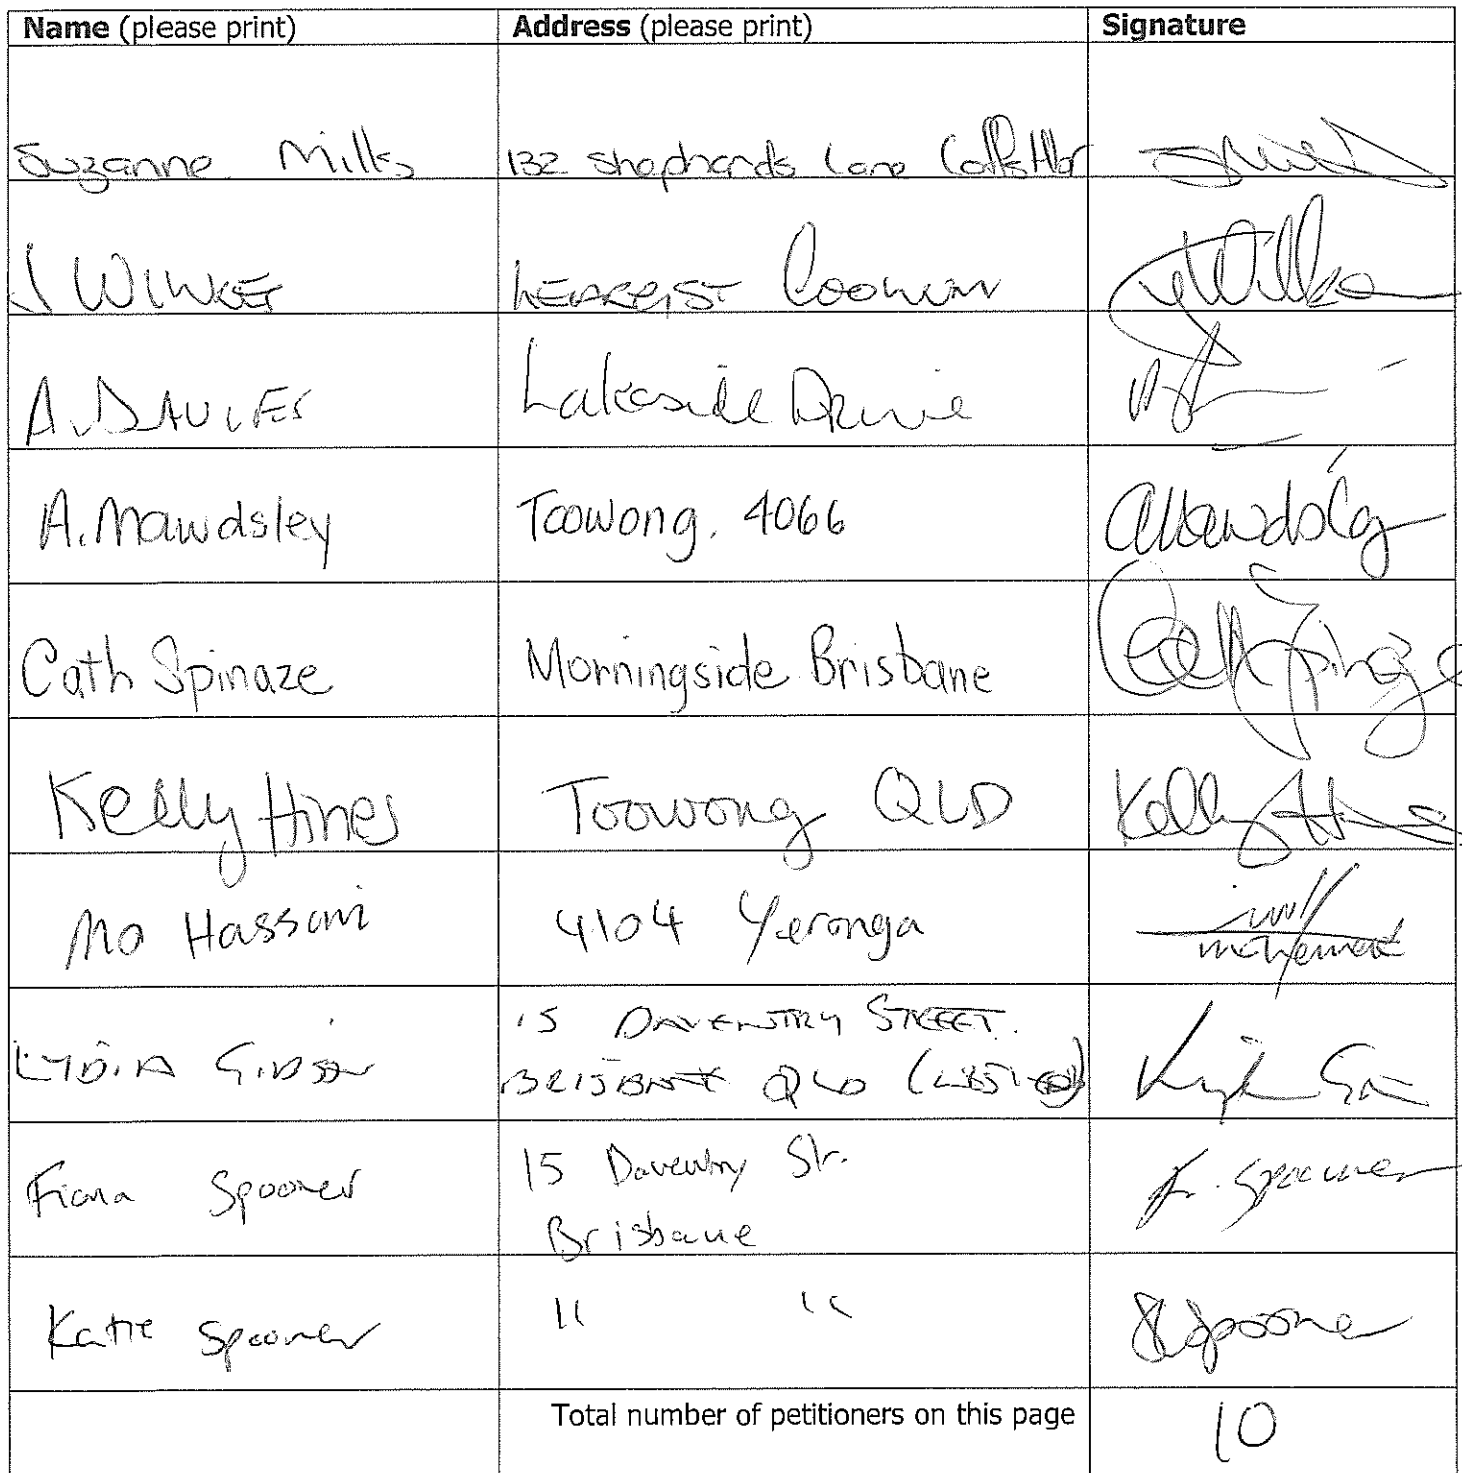 Name (please print) Address (please print) Signature
Suzanne Mills 132 Shephards Lane Coffs Hbr
J Coolum
A. DAVIES Lakeside Drive
A. Mawdsley Toowong. 4066 AMawdsley
Cath Spinaze Morningside Brisbane Cath Spinaze
Kelly Hines Toowong QLD Kelly Hines
Mo Hassani 4104 Yeronga
LYDIA GIBSON 15 DAVENTRY STREET.
BRISBANE QLD
Fiona Spooner 15 Daventry St. F. Spooner
Brisbane
Katie Spooner " " KSpooner
Total number of petitioners on this page 10